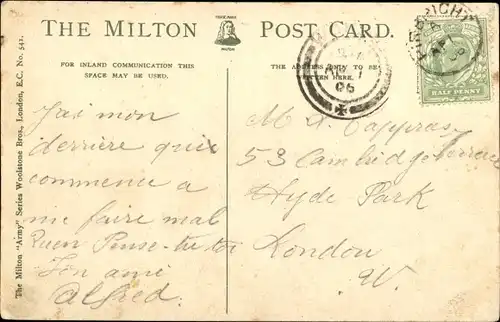 THE MILTON POST CARD.
MILTON
FOR INLAND COMMUNICATION THIS
SPACE MAY BE USED.
THE ADDRESS ONLY TO BE
WRITTEN HERE.
The Milton "Army" Series Woolstone Bros., London, E.C. No. 541.
mon
derrière qui
commence a
me faire mal
Quen Pense-tu toi
Ton ami
Alfred.
AP 1
06
HALF PENNY
M
53 Cambridge Terrace
Hyde Park
London
W.